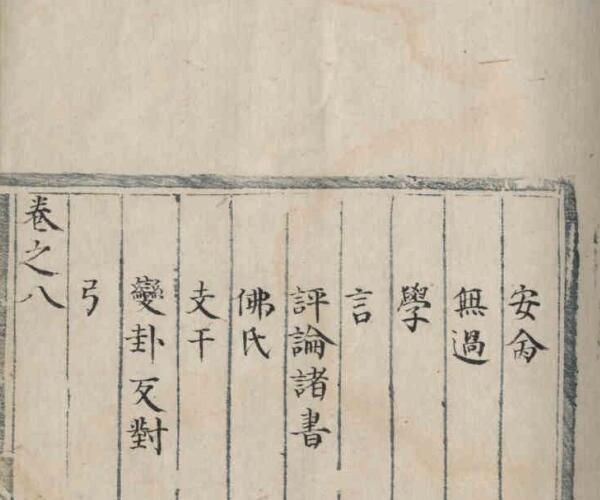 安命
無過
學
言
評論諸書
佛氏
支干
變卦反對
弓
卷之八